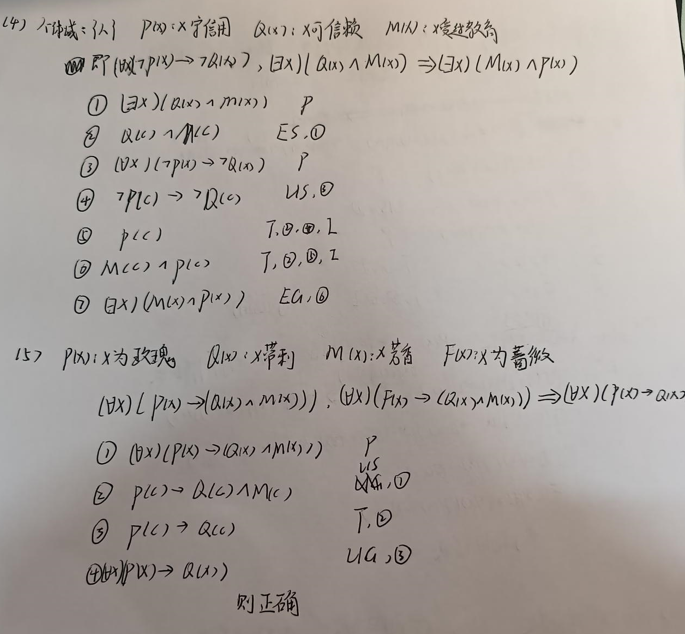 (4) 个体域:{人} P(x):x守信用 Q(x):x可信赖 M(x):x受过教育
即(∀x)(¬P(x)→¬Q(x)), (∃x)(Q(x)∧M(x))⇒(∃x)(M(x)∧P(x))
① (∃x)(Q(x)∧M(x)) P
② Q(c)∧M(c) ES,①
③ (∀x)(¬P(x)→¬Q(x)) P
④ ¬P(c)→¬Q(c) US,③
⑤ P(c) T,②,④,I
⑥ M(c)∧P(c) T,②,⑤,I
⑦ (∃x)(M(x)∧P(x)) EG,⑥
(5) P(x):x为玫瑰 Q(x):x带刺 M(x):x芳香 F(x):x为蔷薇
(∀x)(P(x)→(Q(x)∧M(x))), (∀x)(F(x)→(Q(x)∧M(x)))⇒(∀x)(P(x)→Q(x)
① (∀x)(P(x)→(Q(x)∧M(x))) P
② P(c)→Q(c)∧M(c) US,①
③ P(c)→Q(c) T,②
④(∀x)(P(x)→Q(x)) UG,③
则正确